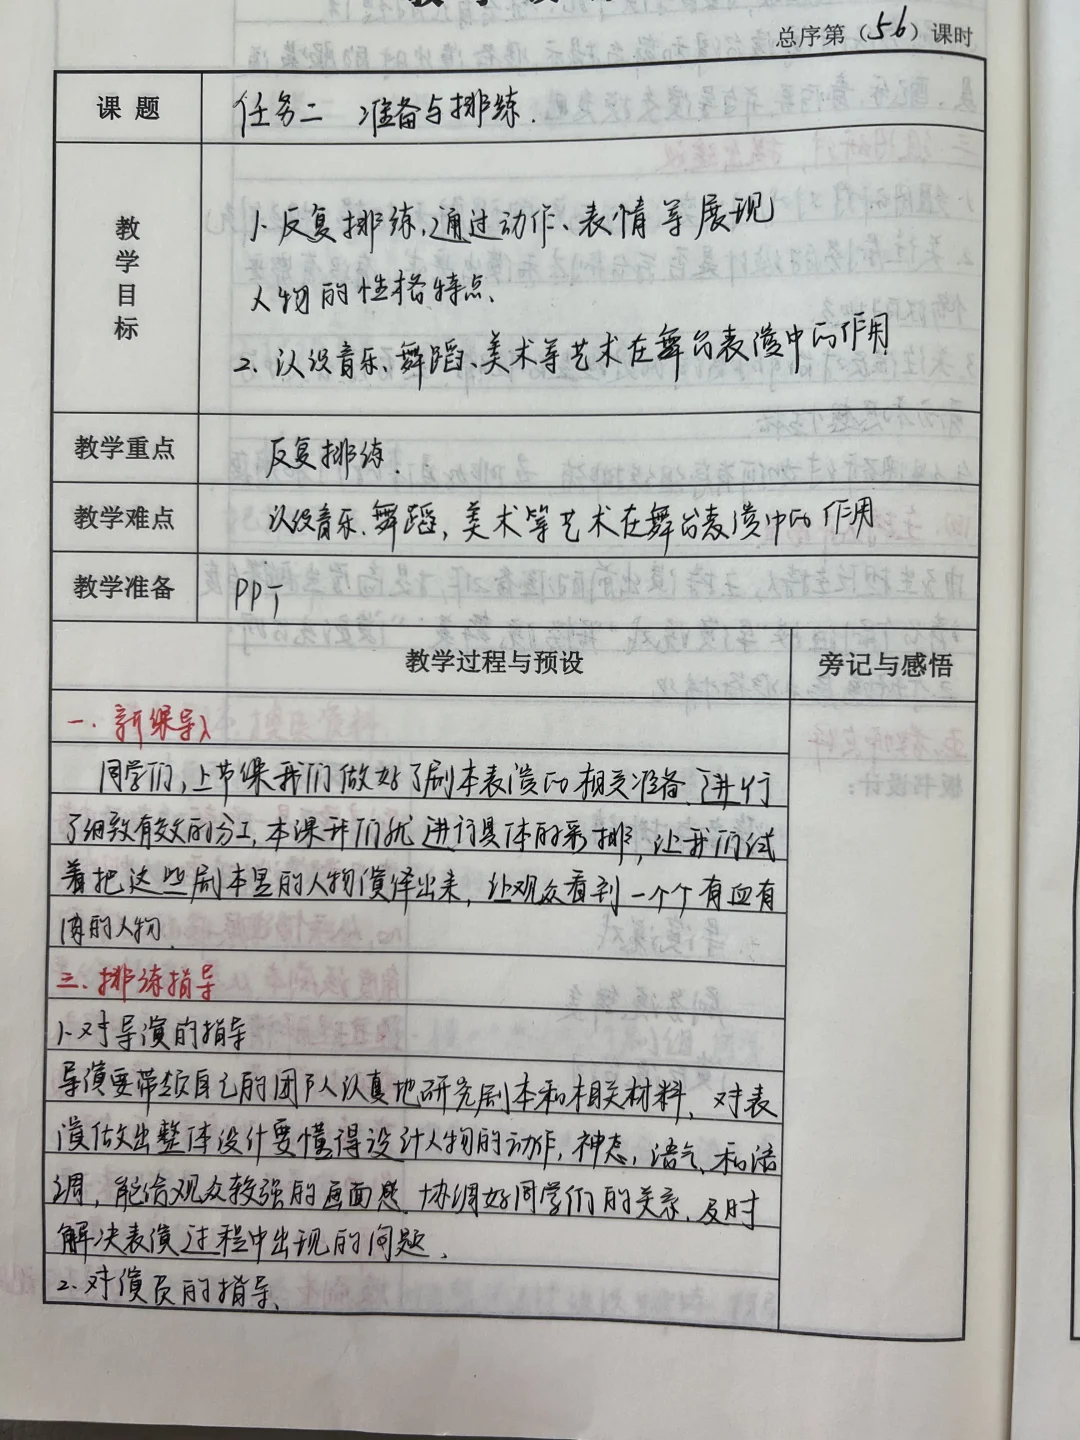 总序第（56）课时
课题 任务二 准备与排练.
教学目标
1. 反复排练,通过动作、表情等展现
人物的性格特点、
2. 认识音乐、舞蹈、美术等艺术在舞台表演中的作用
教学重点 反复排练.
教学难点 认识音乐、舞蹈, 美术等艺术在舞台表演中的作用
教学准备 PPT
教学过程与预设 旁记与感悟
一. 新课导入
同学们,上节课我们做好了剧本表演的相关准备.进行
了细致有效的分工,本课我们就进行具体的彩排,让我们试
着把这些剧本里的人物演绎出来,让观众看到一个个有血有
肉的人物.
三. 排练指导
1. 对导演的指导
导演要带领自己的团队认真地研究剧本和相关材料、对表
演做出整体设计要懂得设计人物的动作,神态,语气、和语
调,能给观众较强的画面感.协调好同学们的关系.及时
解决表演过程中出现的问题.
2. 对演员的指导、